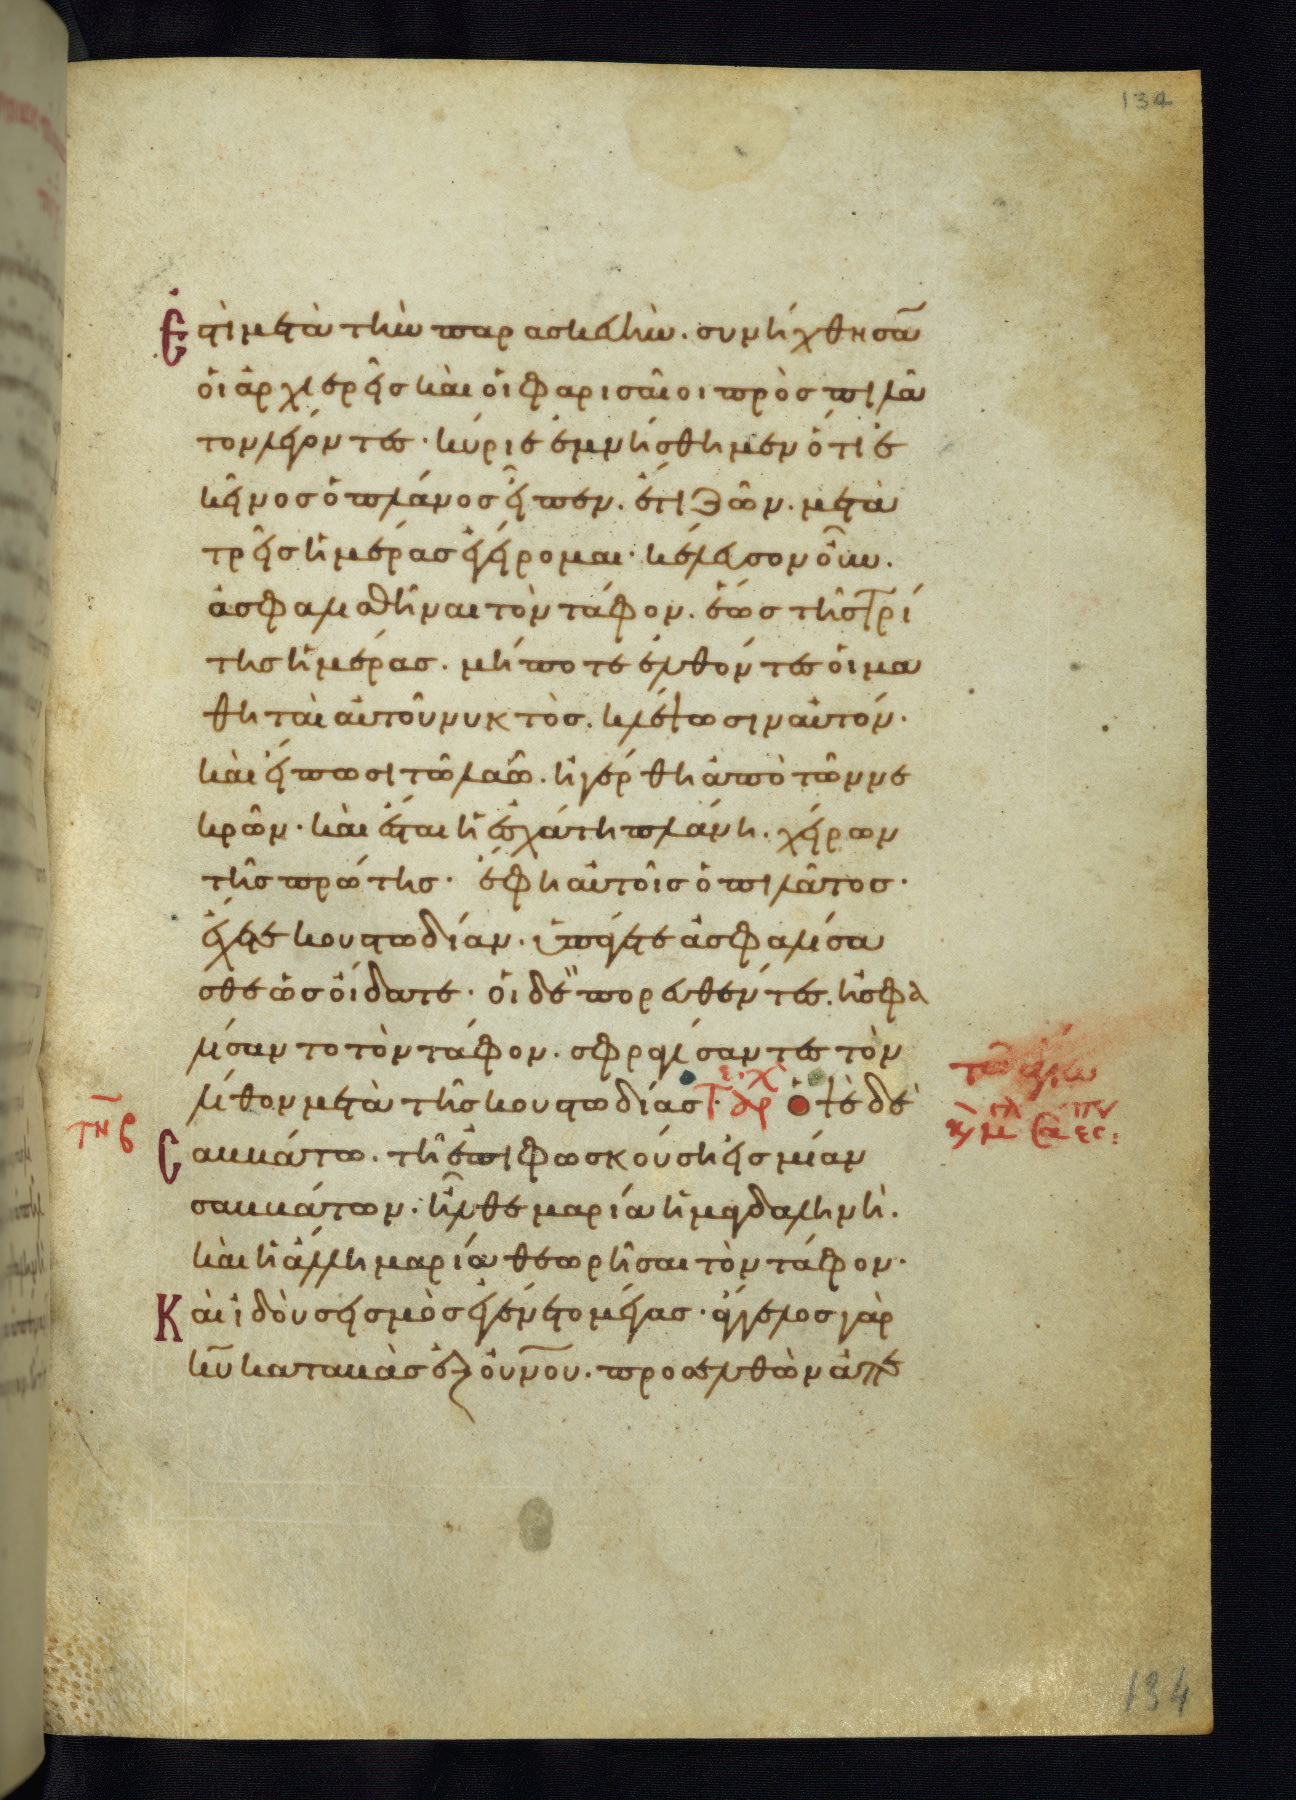 134
ἐστὶ μετὰ τὴν παρασκευὴν. συνήχθησᾱ
οἱ ἀρχιερεῖς καὶ οἱ φαρισαῖοι πρὸς πιλᾶ
τον λέγοντες· κύριε ἐμνήσθημεν ὅτι ἐ
κεῖνος ὁ πλάνος εἶπεν. ἔτι ζῶν. μετὰ
τρεῖς ἡμέρας ἐγείρομαι· κέλευσον οὖν.
ἀσφαλισθῆναι τὸν τάφον. ἕως τῆς τρί
της ἡμέρας. μήποτε ἐλθόντες οἱ μα
θηταὶ αὐτοῦ νυκτὸς. κλέψωσιν αὐτόν.
καὶ εἴπωσι τῶ λαῶ. ἠγέρθη ἀπὸ τῶν νε
κρῶν· καὶ ἔσται ἡ ἐσχάτη πλάνη. χείρων
τῆς πρώτης· ἔφη αὐτοῖς ὁ πιλᾶτος·
ἔχετε κουστωδίαν. ὑπάγετε ἀσφαλίσα
σθε ὡς οἴδατε· οἱ δὲ πορευθέντες. ἠσφα
λίσαντο τὸν τάφον. σφραγίσαντες τὸν
λίθον μετὰ τῆς κουστωδίας· ὀψὲ δὲ
σαββάτω. τῆ ἐπιφωσκούση εἰς μίαν
σαββάτων. ἦλθε μαρία ἡ μαγδαληνὴ.
καὶ ἡ ἄλλη μαρία θεωρῆσαι τὸν τάφον·
Καὶ ἰδοὺ σεισμὸς ἐγένετο μέγας· ἄγγελος γὰρ
κ̅υ̅ καταβὰς ἐξ οὐν̅ου. προσελθὼν ἀπε
134